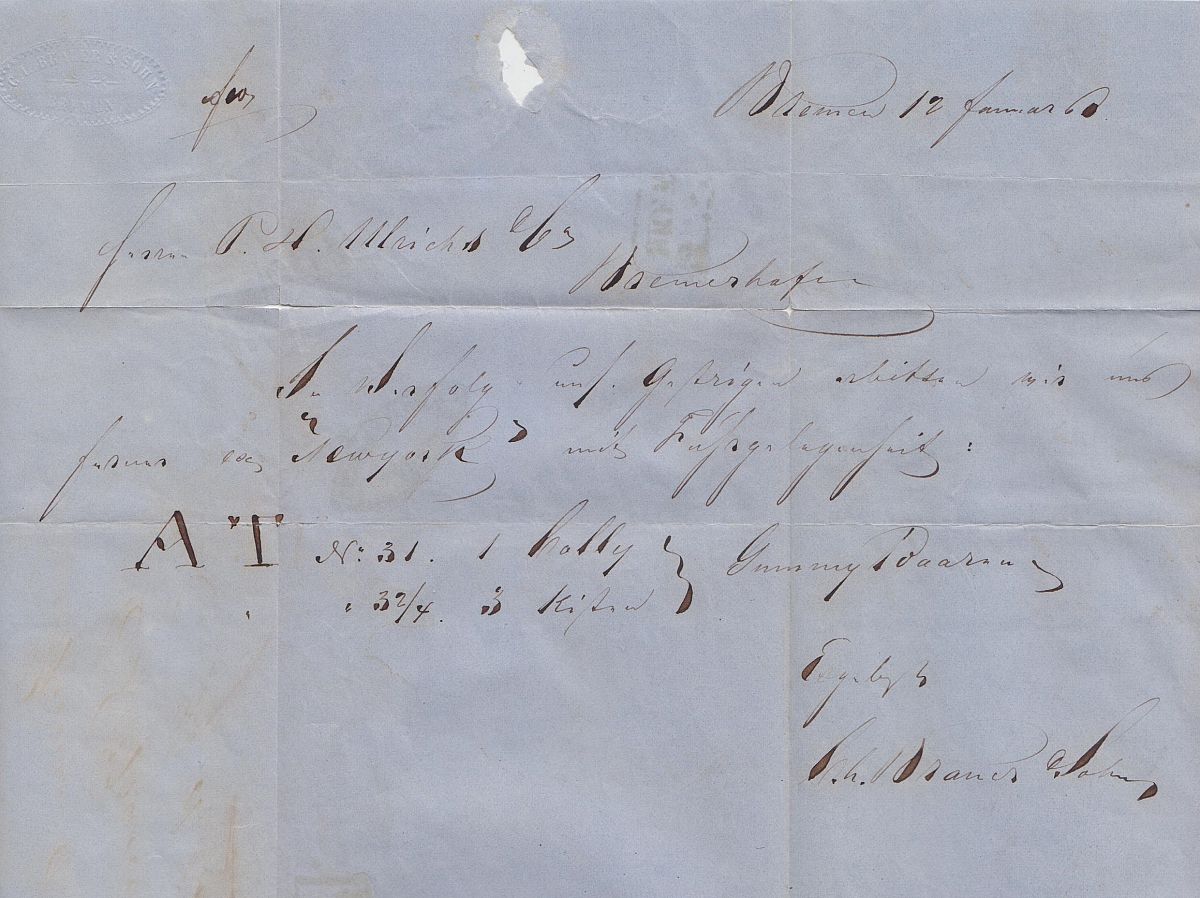 Bremen 12 Januar 60.
Herren P. H. Ulrichs & Co
Bremerhafen
In Verfolg uns. Gestrigen erbitten wir uns
ferner ex Newyork mit Fuhrgelegenheit:
AT No. 31. 1 Colly } Gummy Waaren
" " 32/4. 3 Kisten
Ergebenst
C. L. Brauer & Sohn